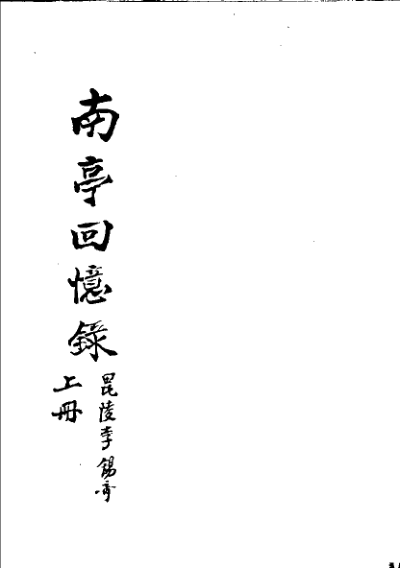 南亭回憶錄
毘陵李錫
上冊